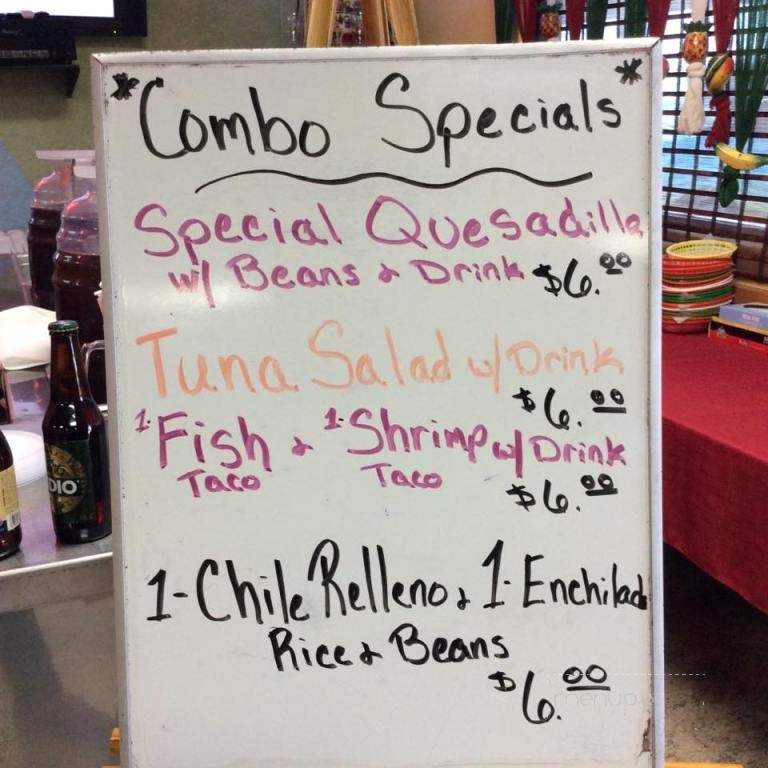 *Combo Specials*
Special Quesadilla
w/ Beans & Drink $6.00
Tuna Salad w/ Drink
$6.00
1-Fish & 1-Shrimp w/ Drink
Taco Taco
$6.00
1-Chile Relleno & 1-Enchilada
Rice & Beans
$6.00
menupix
DIO